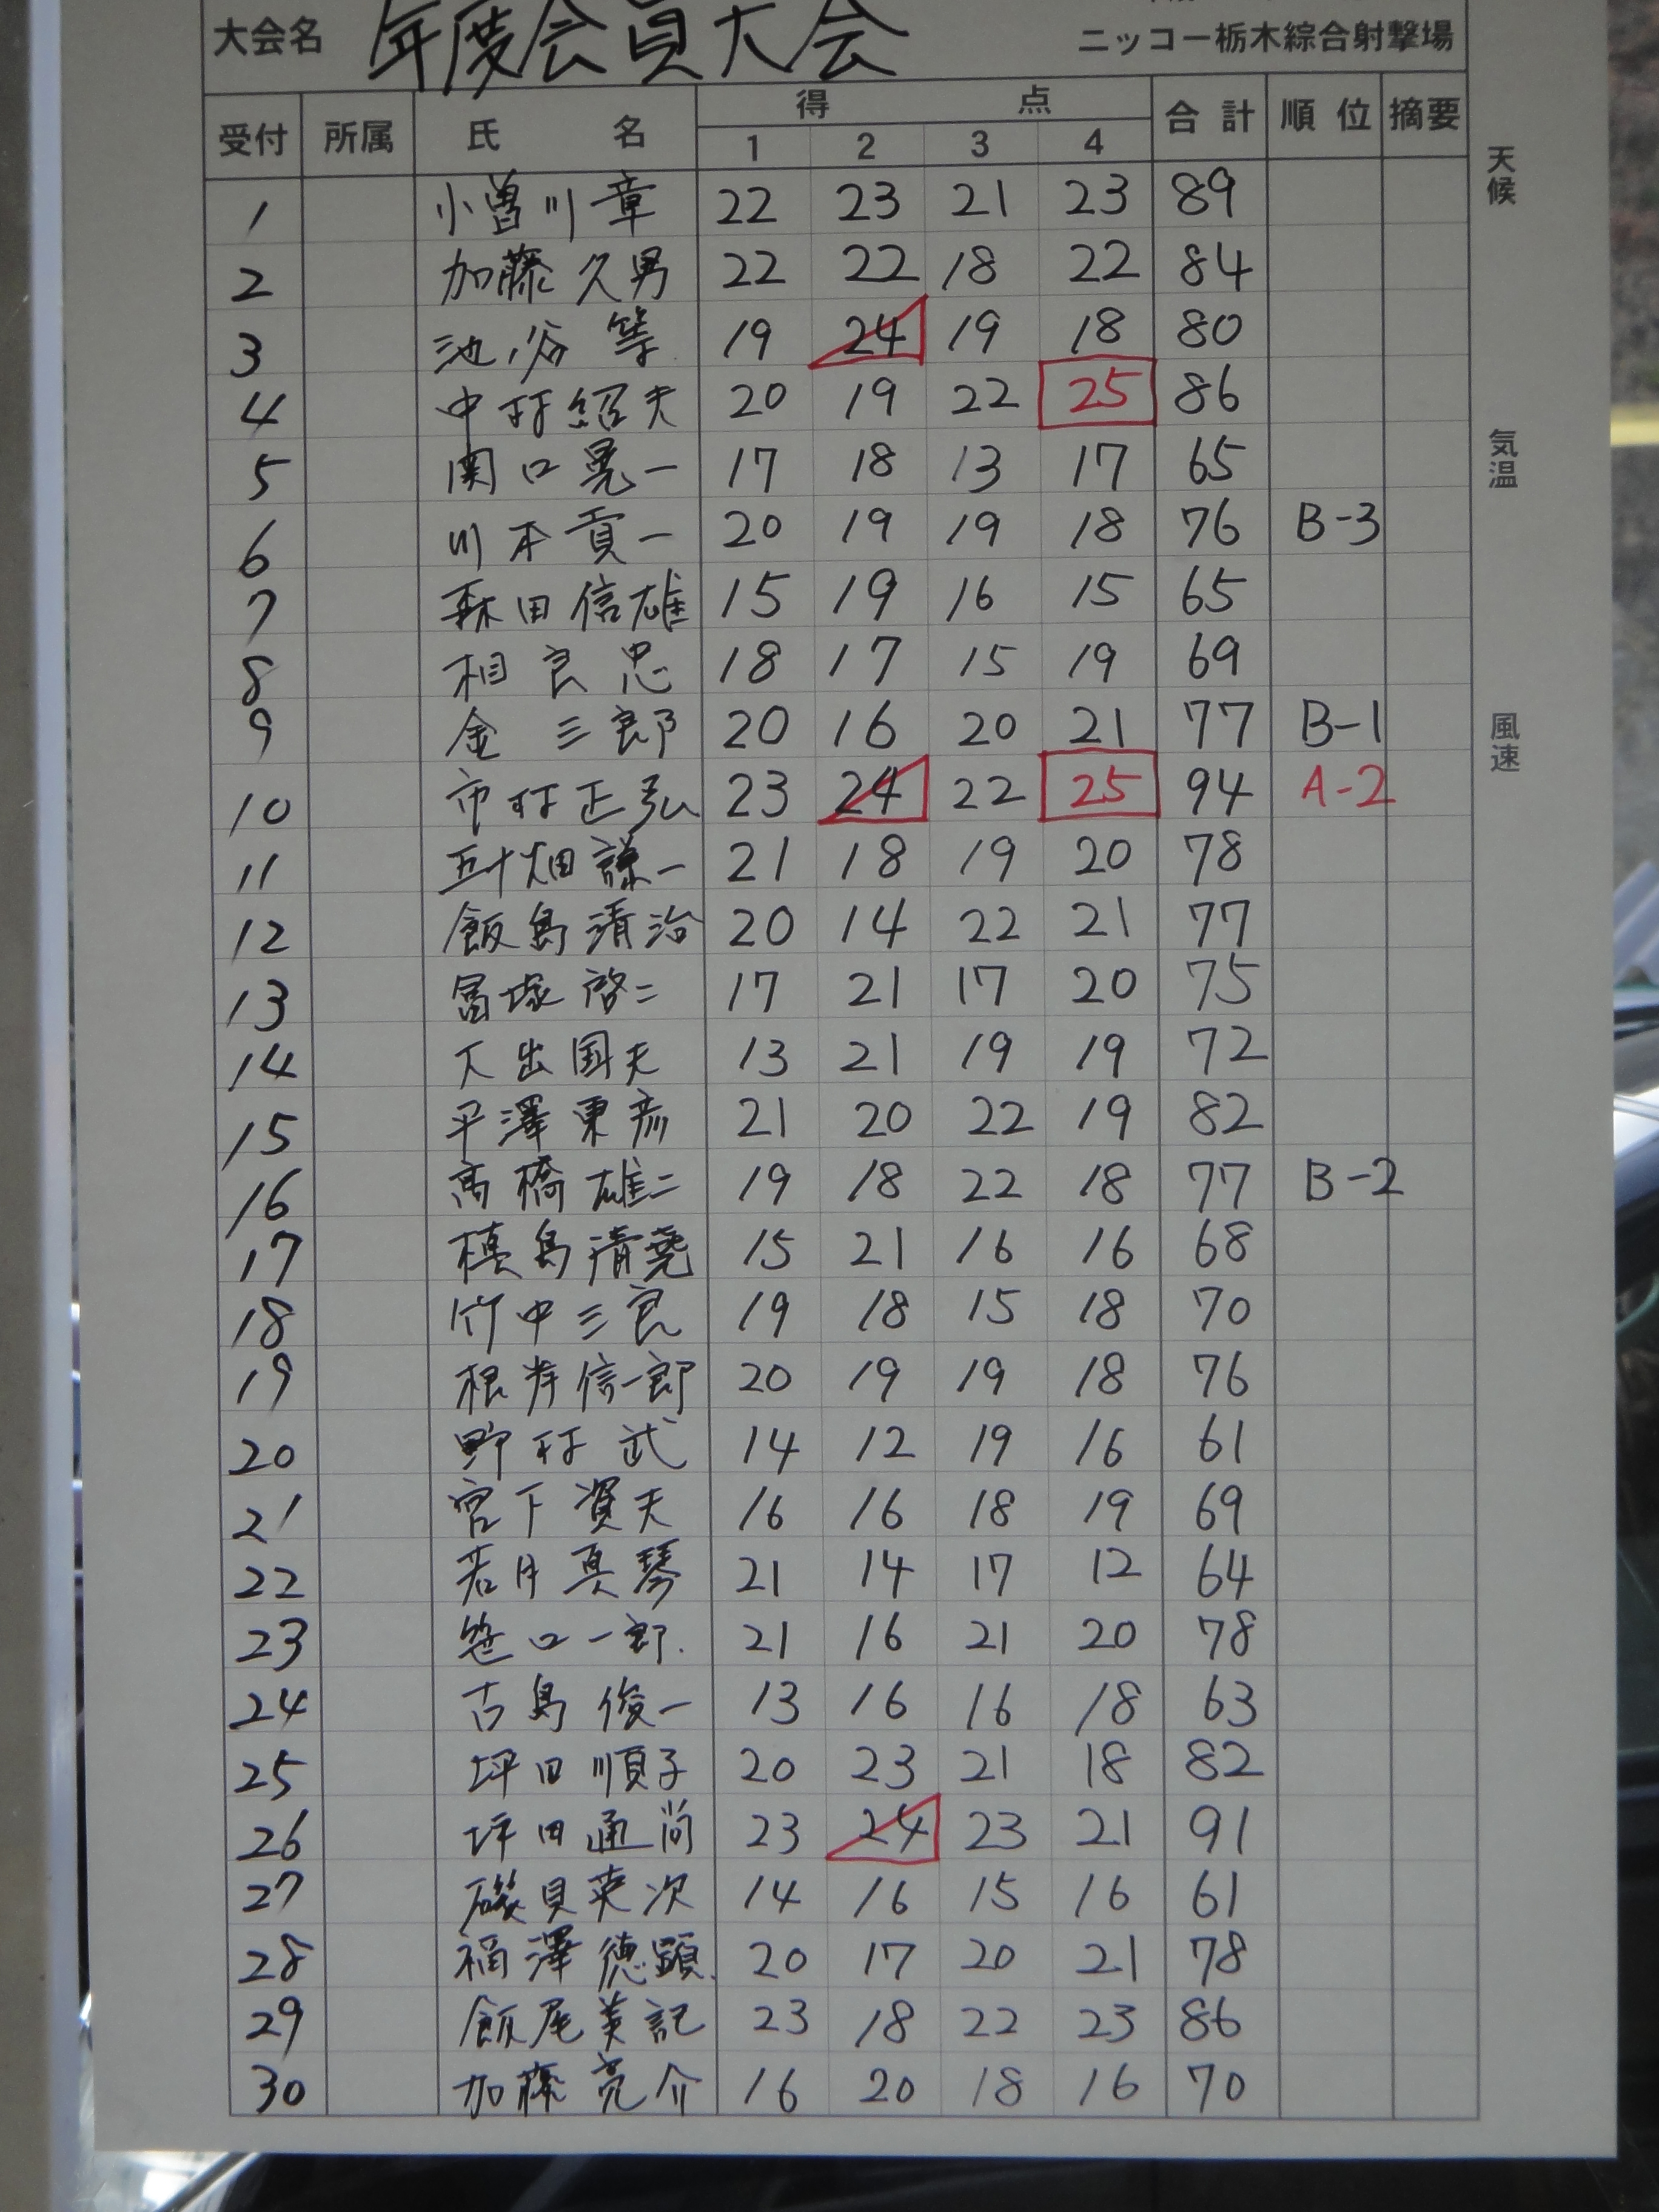 大会名 年度会員大会 ニッコー栃木綜合射撃場
受付 所属 氏名 得点 合計 順位 摘要
1 2 3 4
1 小曽川章 22 23 21 23 89
2 加藤久男 22 22 18 22 84
3 池谷等 19 24 19 18 80
4 中村紹夫 20 19 22 25 86
5 関口晃一 17 18 13 17 65
6 川本貢一 20 19 19 18 76 B-3
7 森田信雄 15 19 16 15 65
8 相良忠 18 17 15 19 69
9 金三郎 20 16 20 21 77 B-1
10 市村正弘 23 24 22 25 94 A-2
11 五十畑謙一 21 18 19 20 78
12 飯島清治 20 14 22 21 77
13 冨塚啓二 17 21 17 20 75
14 大出国夫 13 21 19 19 72
15 平澤東彦 21 20 22 19 82
16 高橋雄二 19 18 22 18 77 B-2
17 槙島清尭 15 21 16 16 68
18 竹中三良 19 18 15 18 70
19 根岸信一郎 20 19 19 18 76
20 野村武 14 12 19 16 61
21 宮下資夫 16 16 18 19 69
22 若月真琴 21 14 17 12 64
23 笹口一郎 21 16 21 20 78
24 古島俊一 13 16 16 18 63
25 坪田順子 20 23 21 18 82
26 坪田通尚 23 24 23 21 91
27 磯貝英次 14 16 15 16 61
28 福澤徳顕 20 17 20 21 78
29 飯尾美記 23 18 22 23 86
30 加藤亮介 16 20 18 16 70
天候
気温
風速